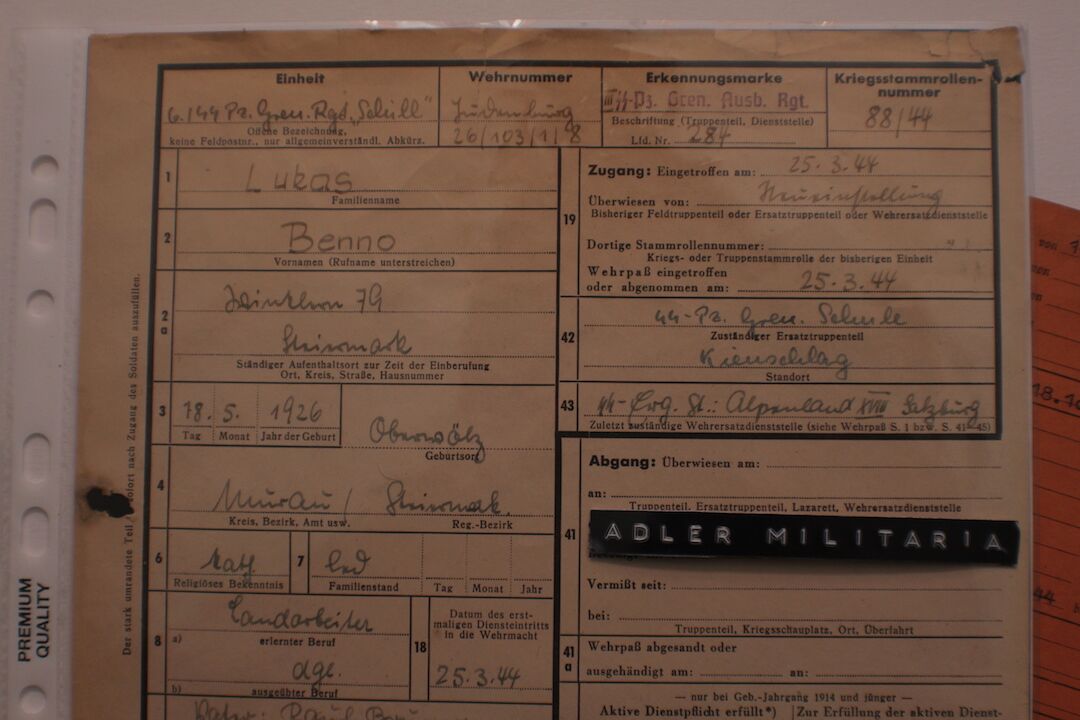 Einheit
6./SS Pz. Gren. Rgt. „Schill"
Offene Bezeichnung,
keine Feldpostnr., nur allgemeinverständl. Abkürz.
Wehrnummer
Judenburg
26/103/1/8
Erkennungsmarke
SS-Pz. Gren. Ausb. Rgt.
Beschriftung (Truppenteil, Dienststelle)
Lfd. Nr. 284
Kriegsstammrollen-
nummer
88/44
1
Lukas
Familienname
2
Benno
Vornamen (Rufname unterstreichen)
2
a
Winklern 79
Steiermark
Ständiger Aufenthaltsort zur Zeit der Einberufung
Ort, Kreis, Straße, Hausnummer
3
18. 5. 1926
Tag Monat Jahr der Geburt
Oberwölz
Geburtsort
4
Murau / Steiermark.
Kreis, Bezirk, Amt usw. Reg.-Bezirk
6
Kath
Religiöses Bekenntnis
7
led
Familienstand
Tag Monat Jahr
8
a)
Landarbeiter
erlernter Beruf
dgl.
b)
ausgeübter Beruf
18
Datum des erst-
maligen Diensteintritts
in die Wehrmacht
25.3.44
Vater: Paul
19
Zugang: Eingetroffen am: 25.3.44
Überwiesen von: Neueinstellung
Bisheriger Feldtruppenteil oder Ersatztruppenteil oder Wehrersatzdienststelle
Dortige Stammrollennummer:
Kriegs- oder Truppenstammrolle der bisherigen Einheit
Wehrpaß eingetroffen
oder abgenommen am: 25.3.44
42
SS-Pz. Gren. Schule
Zuständiger Ersatztruppenteil
Kienschlag
Standort
43
SS-Erg. St.: Alpenland XVIII Salzburg
Zuletzt zuständige Wehrersatzdienststelle (siehe Wehrpaß S. 1 bzw. S. 41-45)
41
Abgang: Überwiesen am:
an:
Truppenteil, Ersatztruppenteil, Lazarett, Wehrersatzdienststelle
ADLER MILITARIA
Vermißt seit:
bei:
Truppenteil, Kriegsschauplatz, Ort, Überfahrt
41
a
Wehrpaß abgesandt oder
ausgehändigt am: an:
— nur bei Geb.-Jahrgang 1914 und jünger —
Aktive Dienstpflicht erfüllt*) Zur Erfüllung der aktiven Dienst-
Der stark umrandete Teil sofort nach Zugang des Soldaten auszufüllen.
PREMIUM
QUALITY
von
18.10
44